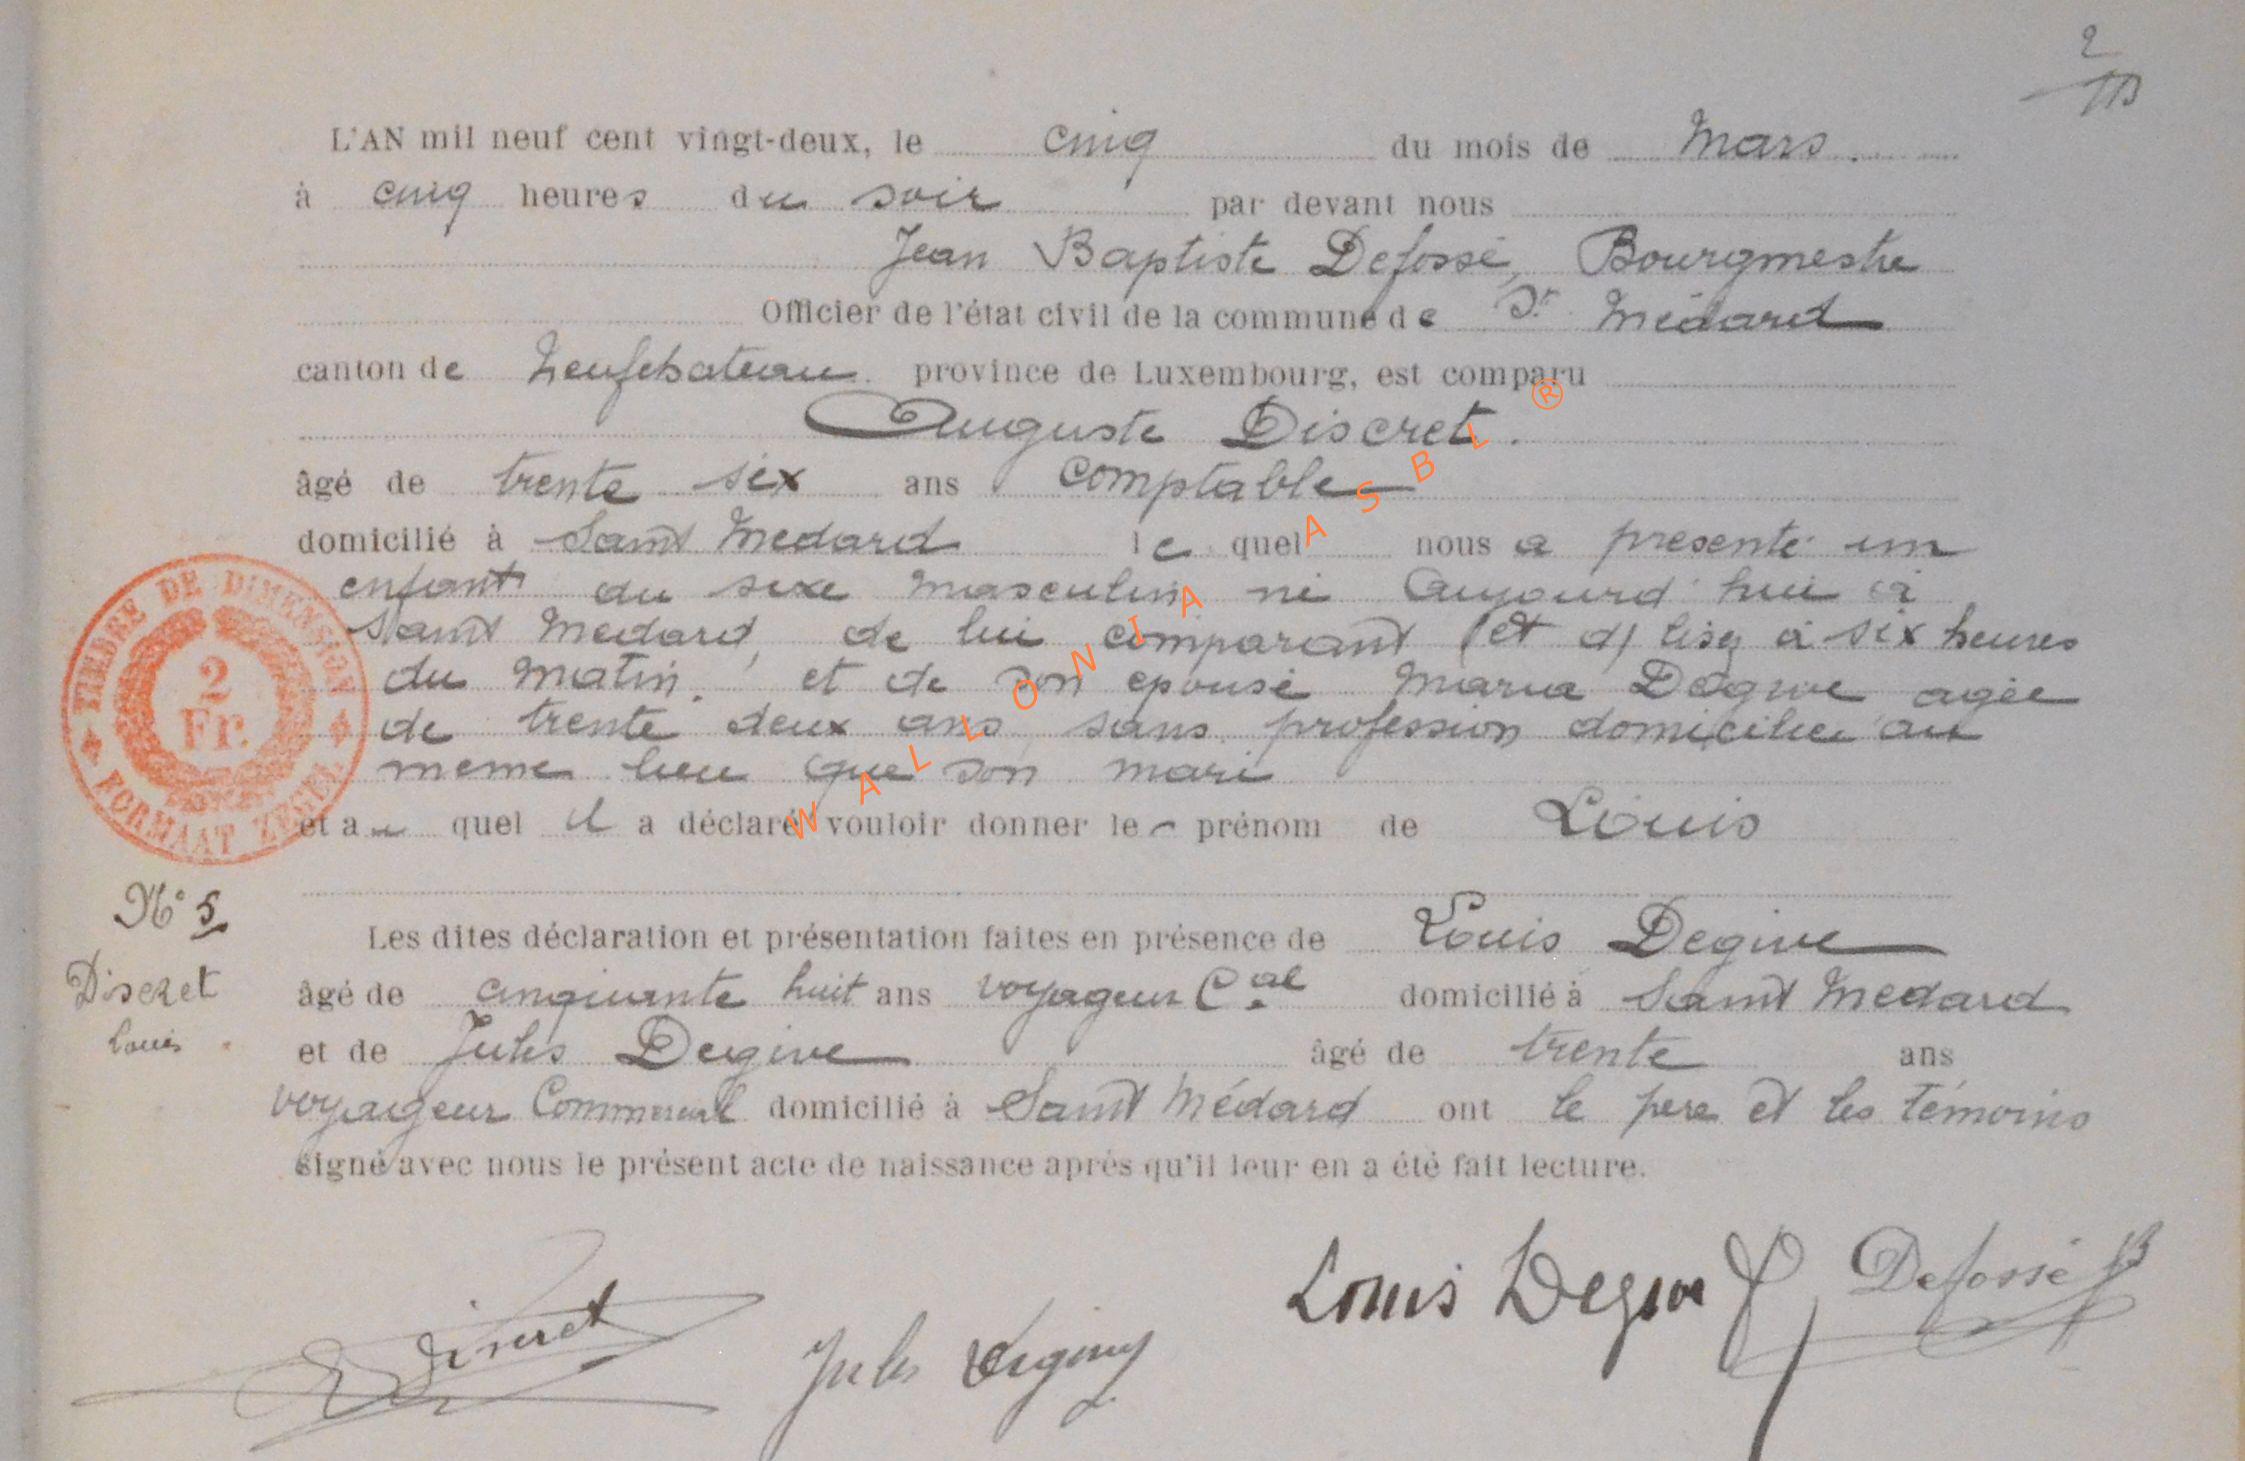 2
L'AN mil neuf cent vingt-deux, le cinq du mois de Mars.
à cinq heures du soir par devant nous
Jean Baptiste Defossé, Bourgmestre
Officier de l'état civil de la commune de St Médard
canton de Neufchateau province de Luxembourg, est comparu
Auguste Discret.
âgé de trente six ans comptable
domicilié à Saint Medard le quel nous a présenté un
enfant du sexe masculin né aujourd'hui à
Saint Medard, de lui comparant (et d) lisez à six heures
du matin. et de son epouse Maria Degive agée
de trente deux ans, sans profession domiciliée au
meme lieu que son mari
et au quel il a déclaré vouloir donner le prénom de Louis
Les dites déclaration et présentation faites en présence de Louis Degive
âgé de cinquante huit ans voyageur Cal domicilié à Saint Medard
et de Jules Degive âgé de trente ans
voyageur Commercial domicilié à Saint Médard ont le père et les témoins
signé avec nous le présent acte de naissance après qu'il leur en a été fait lecture.
TIMBRE DE DIMENSION
2
Fr.
FORMAAT ZEGEL
N° 5
Discret
Louis
Discret
Jules Degive
Louis Degive
Defossé JB
WALLONIA ASBL ®